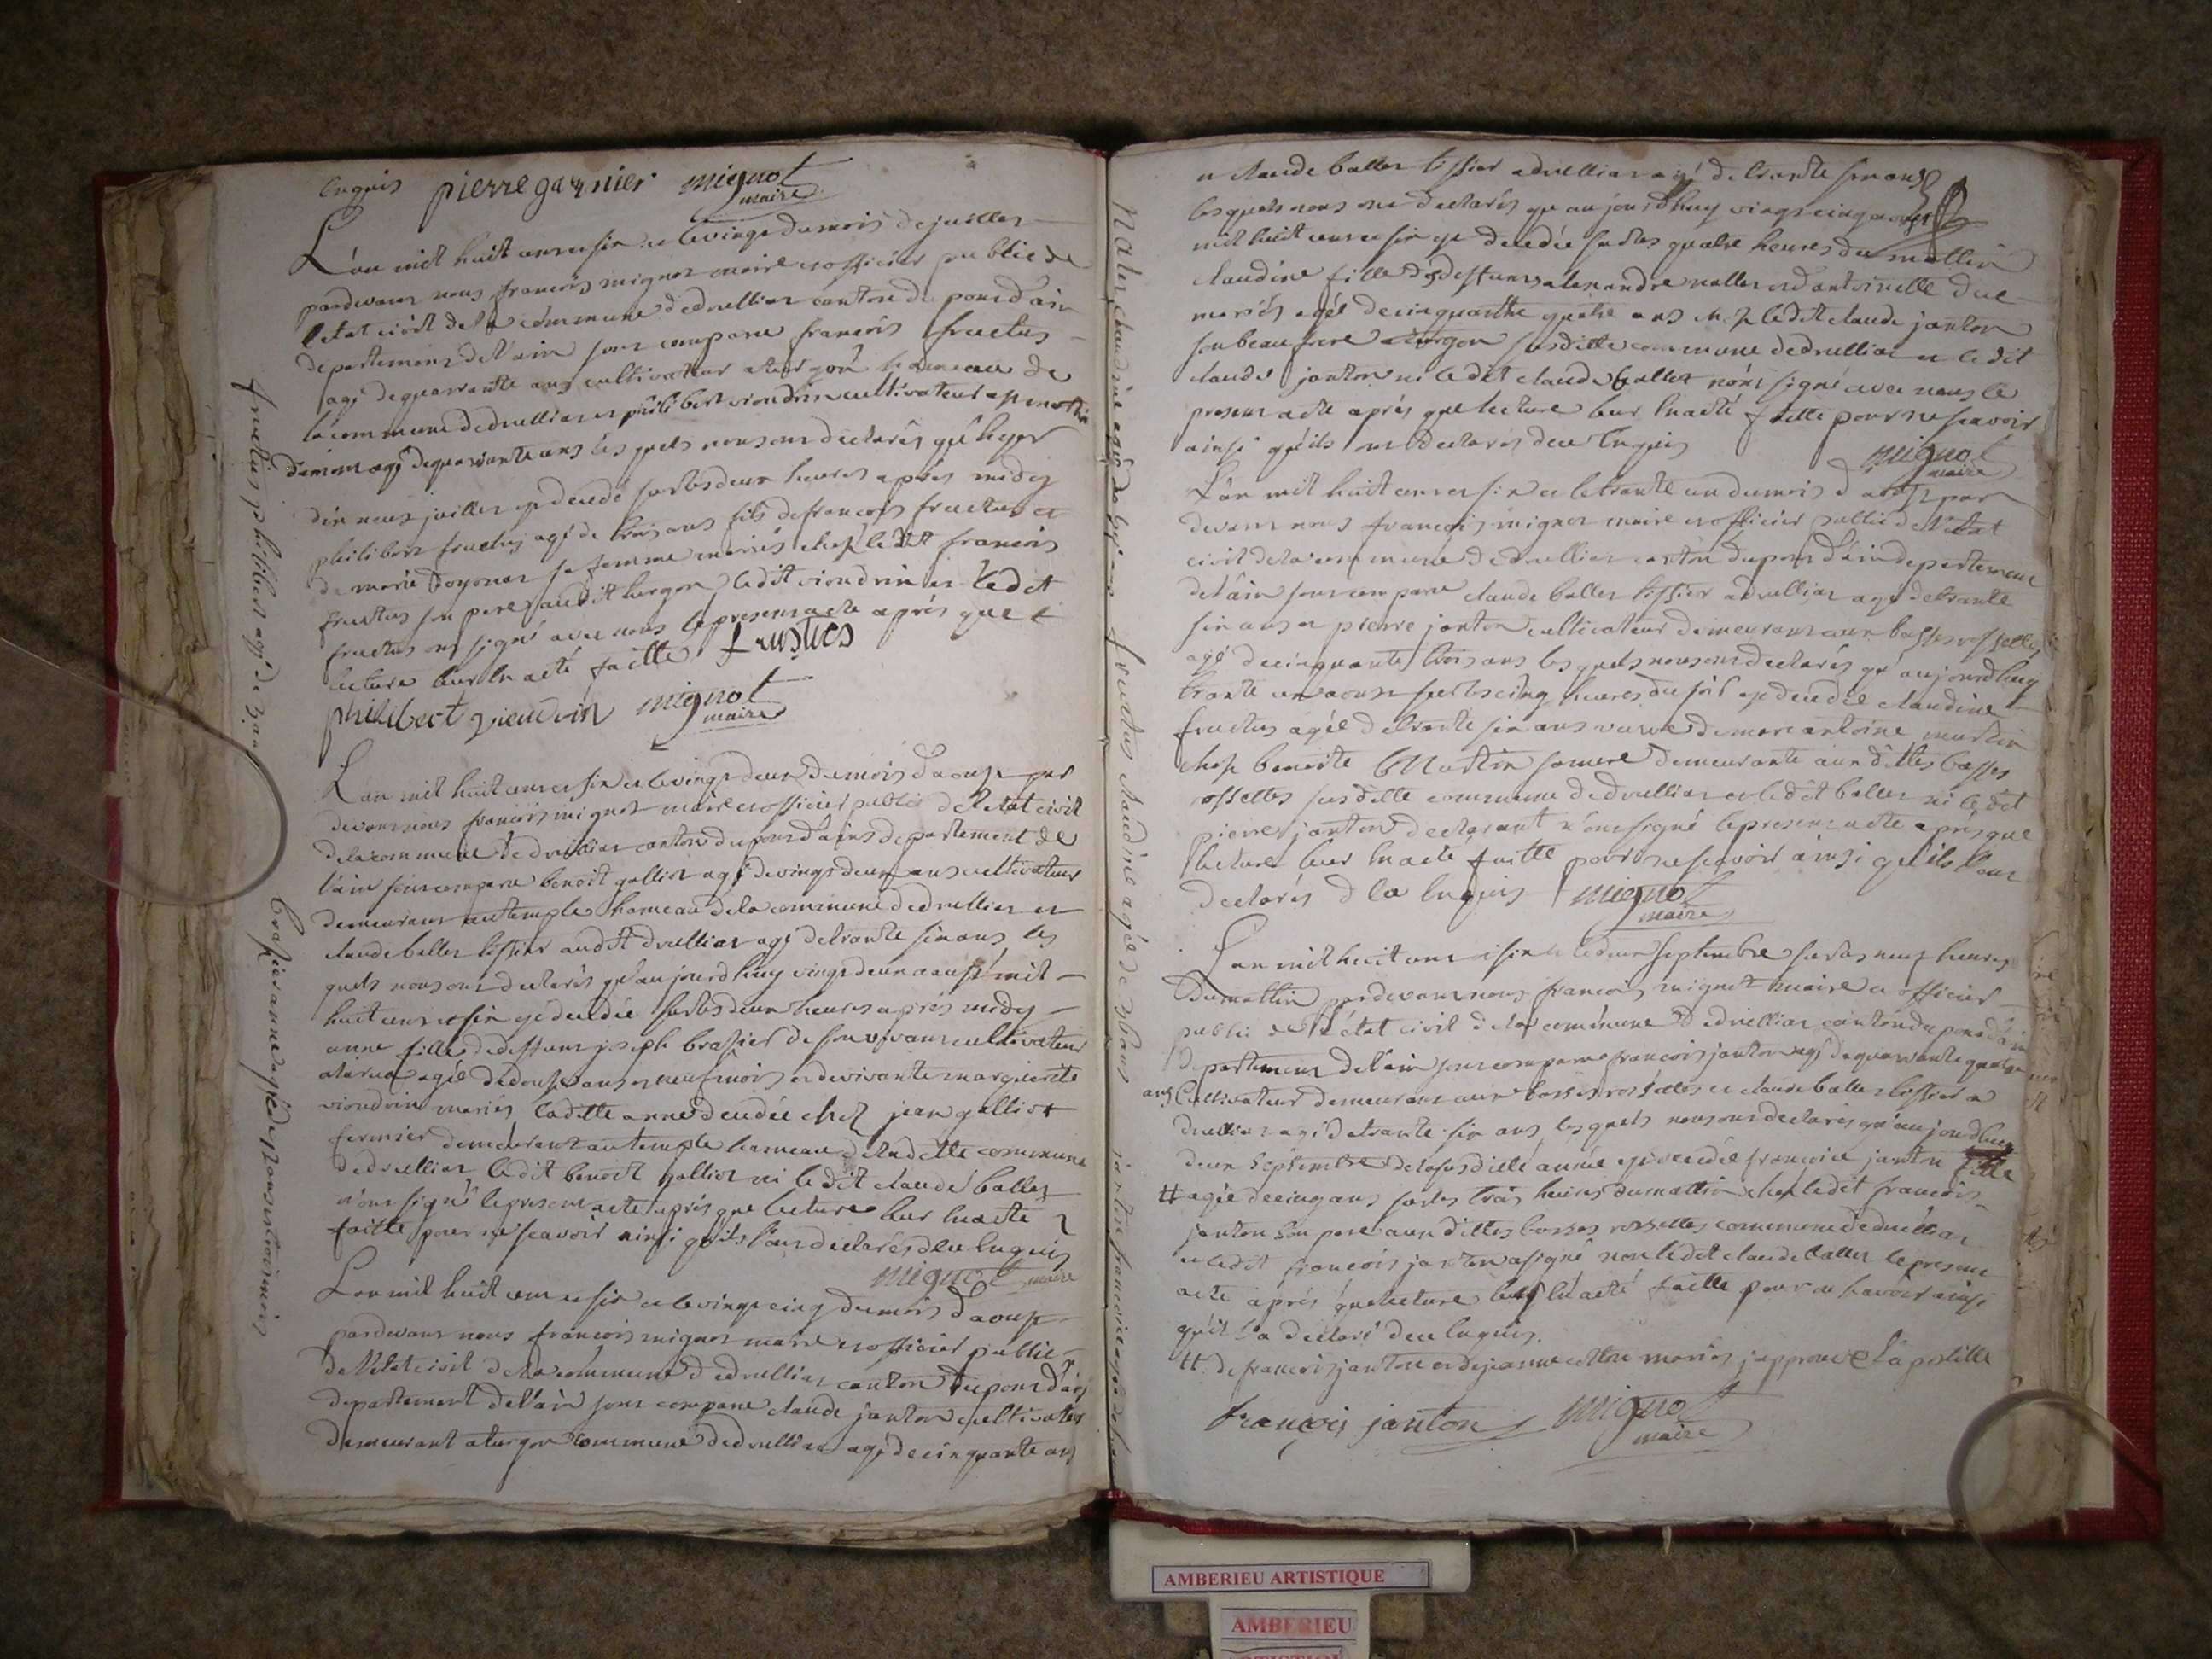 Enquis pierre garnier mignot
maire
L'an mil huit cens et six et le vingt du mois de juillet
pardevant nous francois mignot maire et officier public de
l'etat civil de la commune de druillias canton du pons d'ain
departement de l'ain sont comparu francois fructus
agé de quarrante ans cultivateur a turgon hameau de
la commune de druillias et philibert viondrin cultivateur a
demeurant agé de quarrante ans les quels nous ont declarés qu'hyer
dix neuf juillet est decedé sur les deux heures après midy
philibert fructus agé de trois ans fils de francois fructus et
de marie sa femme mariés chez le dit francois
fructus son pere audit turgon le dit viondrin et le dit
fructus ont signé avec nous le present acte après que
lecture leur en a eté faitte fructus
philibert viendrin mignot
maire
L'an mil huit cens et six et le vingt deux du mois d'aoust par
devant nous francois mignot maire et officier public de l'etat civil
de la commune de druillias canton du pons d'ain departement de
l'ain sont comparu benoit galliot agé de vingt deux ans cultivateur
demeurant au temple hameau de la commune de druillias et
claude ballet tissier audit druillias agé de trante six ans les
quels nous ont declarés qu'aujourd'huy vingt deux aoust mil
huit cens et six est decedée sur les deux heures après midy
anne fille de deffunt joseph brasier de son vivant cultivateur
agée de douze ans et neuf mois et de vivante marguerite
viondrin mariés la ditte anne decedée chez jean galliot
fermier demeurant au temple hameau de la ditte commune
de druillias le dit benoit galliot ni le dit claude ballet
n'ont signé le present acte après que lecture leur en a eté
faitte pour ne scavoir ainsi qu'ils l'ont declarés de ce enquis
mignot maire
L'an mil huit cens et six et le vingt cinq du mois d'aoust
pardevant nous francois mignot maire et officier public
de l'etat civil de la commune de druillias canton du pons d'ain
departement de l'ain sont comparu claude janton cultivateur
demeurant a turgon commune de druillias agé de cinquante ans
fructus philibert agé de 3 ans
brasier anne agée de
nalet claudine agée de 54 ans
fructus claudine agée de 36 ans
janton francoise agée de
et claude ballet tissier a druillias agé de trante six ans
les quels nous ont declarés qu'aujourd'huy vingt cinq aoust
mil huit cens et six est decedée sur les quatre heures du mattin
claudine fille de deffunts alexandre nallet et d'antoinette
mariés agée de cinquantte quatre ans chez le dit claude janton
son beau frere a turgon susditte commune de druillias et le dit
claude janton ni le dit claude ballet n'ont signé avec nous le
present acte après que lecture leur en a eté faitte pour ne scavoir
ainsi qu'ils ont declarés de ce enquis
mignot
maire
L'an mil huit cens et six et le trante un du mois d'aoust par
devant nous francois mignot maire et officier public de l'etat
civil de la commune de druillias canton du pons d'ain departement
de l'ain sont comparu claude ballet tissier a druillias agé de trante
six ans et pierre janton cultivateur demeurant aux basses rossettes
agé de cinquante trois ans les quels nous ont declarés qu'aujourd'huy
trante un aoust sur les cinq heures du soir est decedée claudine
fructus agée de trante six ans veuve de marc antoine martin
chez benoite martin demeurante aux dittes basses
rossettes susditte commune de druillias et le dit ballet ni le dit
pierre janton declarant n'ont signé le present acte après que
lecture leur en a eté faitte pour ne scavoir ainsi qu'ils l'ont
declarés de ce enquis mignot
maire
L'an mil huit cens et six et le deux septembre sur les neuf heures
du mattin pardevant nous francois mignot maire et officier
public de l'état civil de la commune de druillias canton du pons d'ain
departement de l'ain sont comparu francois janton agé de quarrante quatre
ans cultivateur demeurant aux basses rossettes et claude ballet tissier a
druillias agé de trante six ans les quels nous ont declarés qu'aujourdhuy
deux septembre de la susditte année est decedée francoise janton fille
# agée de cinq ans sur les trois heures du mattin chez le dit francois
janton son pere aux dittes basses rossettes commune de druillias
et le dit francois janton a signé non le dit claude ballet le present
acte après que lecture leur en a eté faitte pour ne scavoir ainsi
qu'il l'a declaré de ce enquis.
# de francois janton et de jeanne mariés j'approuve l'apostille
françois janton mignot
maire
AMBERIEU ARTISTIQUE
AMBERIEU
ARTISTIQUE